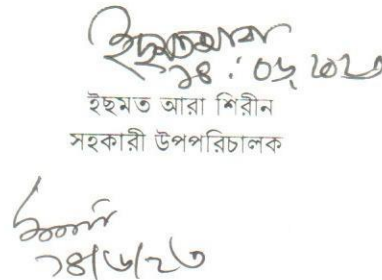 ইছমতআরা
১৪.০৬.২০২৩
ইছমত আরা শিরীন
সহকারী উপপরিচালক
১৪/৬/২৩